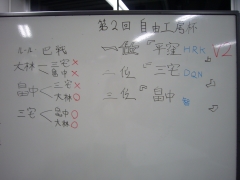 第2回 自由工房杯
ルール 巴戦
大林 三宅 ×
畠中 ×
畠中 三宅 ×
大林 ○
三宅 畠中 ○
大林 ○
一位 平窪 HRK V2
二位 三宅 DQN
三位 畠中